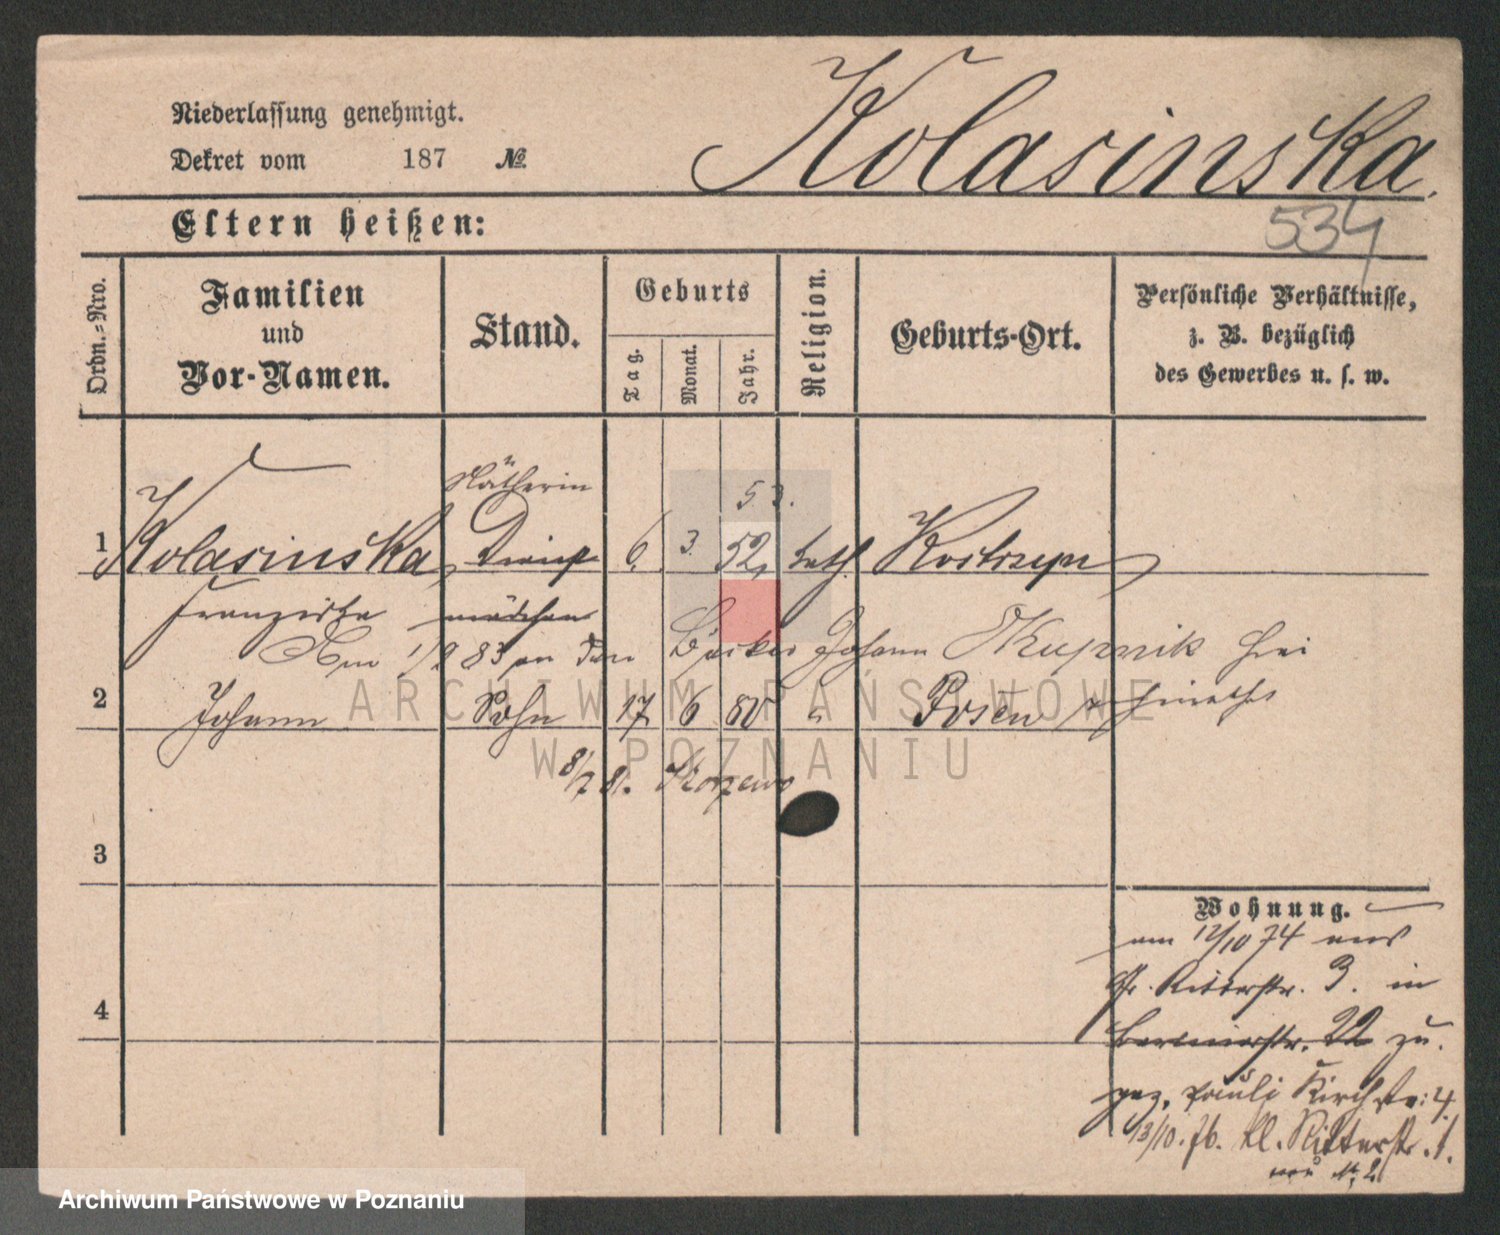 Niederlassung genehmigt.
Dekret vom 187 №
Kolasinska.
Eltern heißen:
534
Ordn.=Nro.
Familien
und
Vor-Namen.
Stand.
Geburts
Tag.
Monat.
Jahr.
Religion.
Geburts-Ort.
Persönliche Verhältnisse,
z. B. bezüglich
des Gewerbes u. s. w.
Nätherin
53.
1 Kolasinska Dienst 6. 3. 52, kath. Kostrzyn
Franziska mädchen
Am 1/9 83 an den Bäcker Johann Kupnik
2 Johann Sohn 17 6 80 " Posen
8/7 81.
ARCHIWUM PAŃSTWOWE
W POZNANIU
3
4
Wohnung.
am 12/10 74 aus
Gr. Ritterstr. 3. in
22 zu.
gez. Pauli Kirchstr: 4.
13/10. 76. kl. Ritterstr. 1.
Archiwum Państwowe w Poznaniu